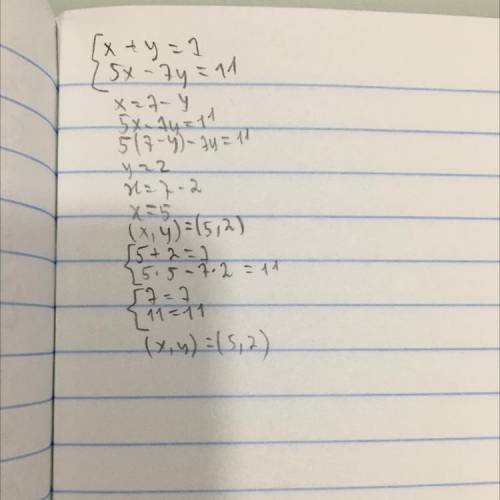 x + y = 7
5x - 7y = 11
x = 7 - y
5x - 7y = 11
5(7-y) - 7y = 11
y = 2
x = 7 - 2
x = 5
(x, y) = (5, 2)
5 + 2 = 7
5 · 5 - 7 · 2 = 11
7 = 7
11 = 11
(x, y) = (5, 2)